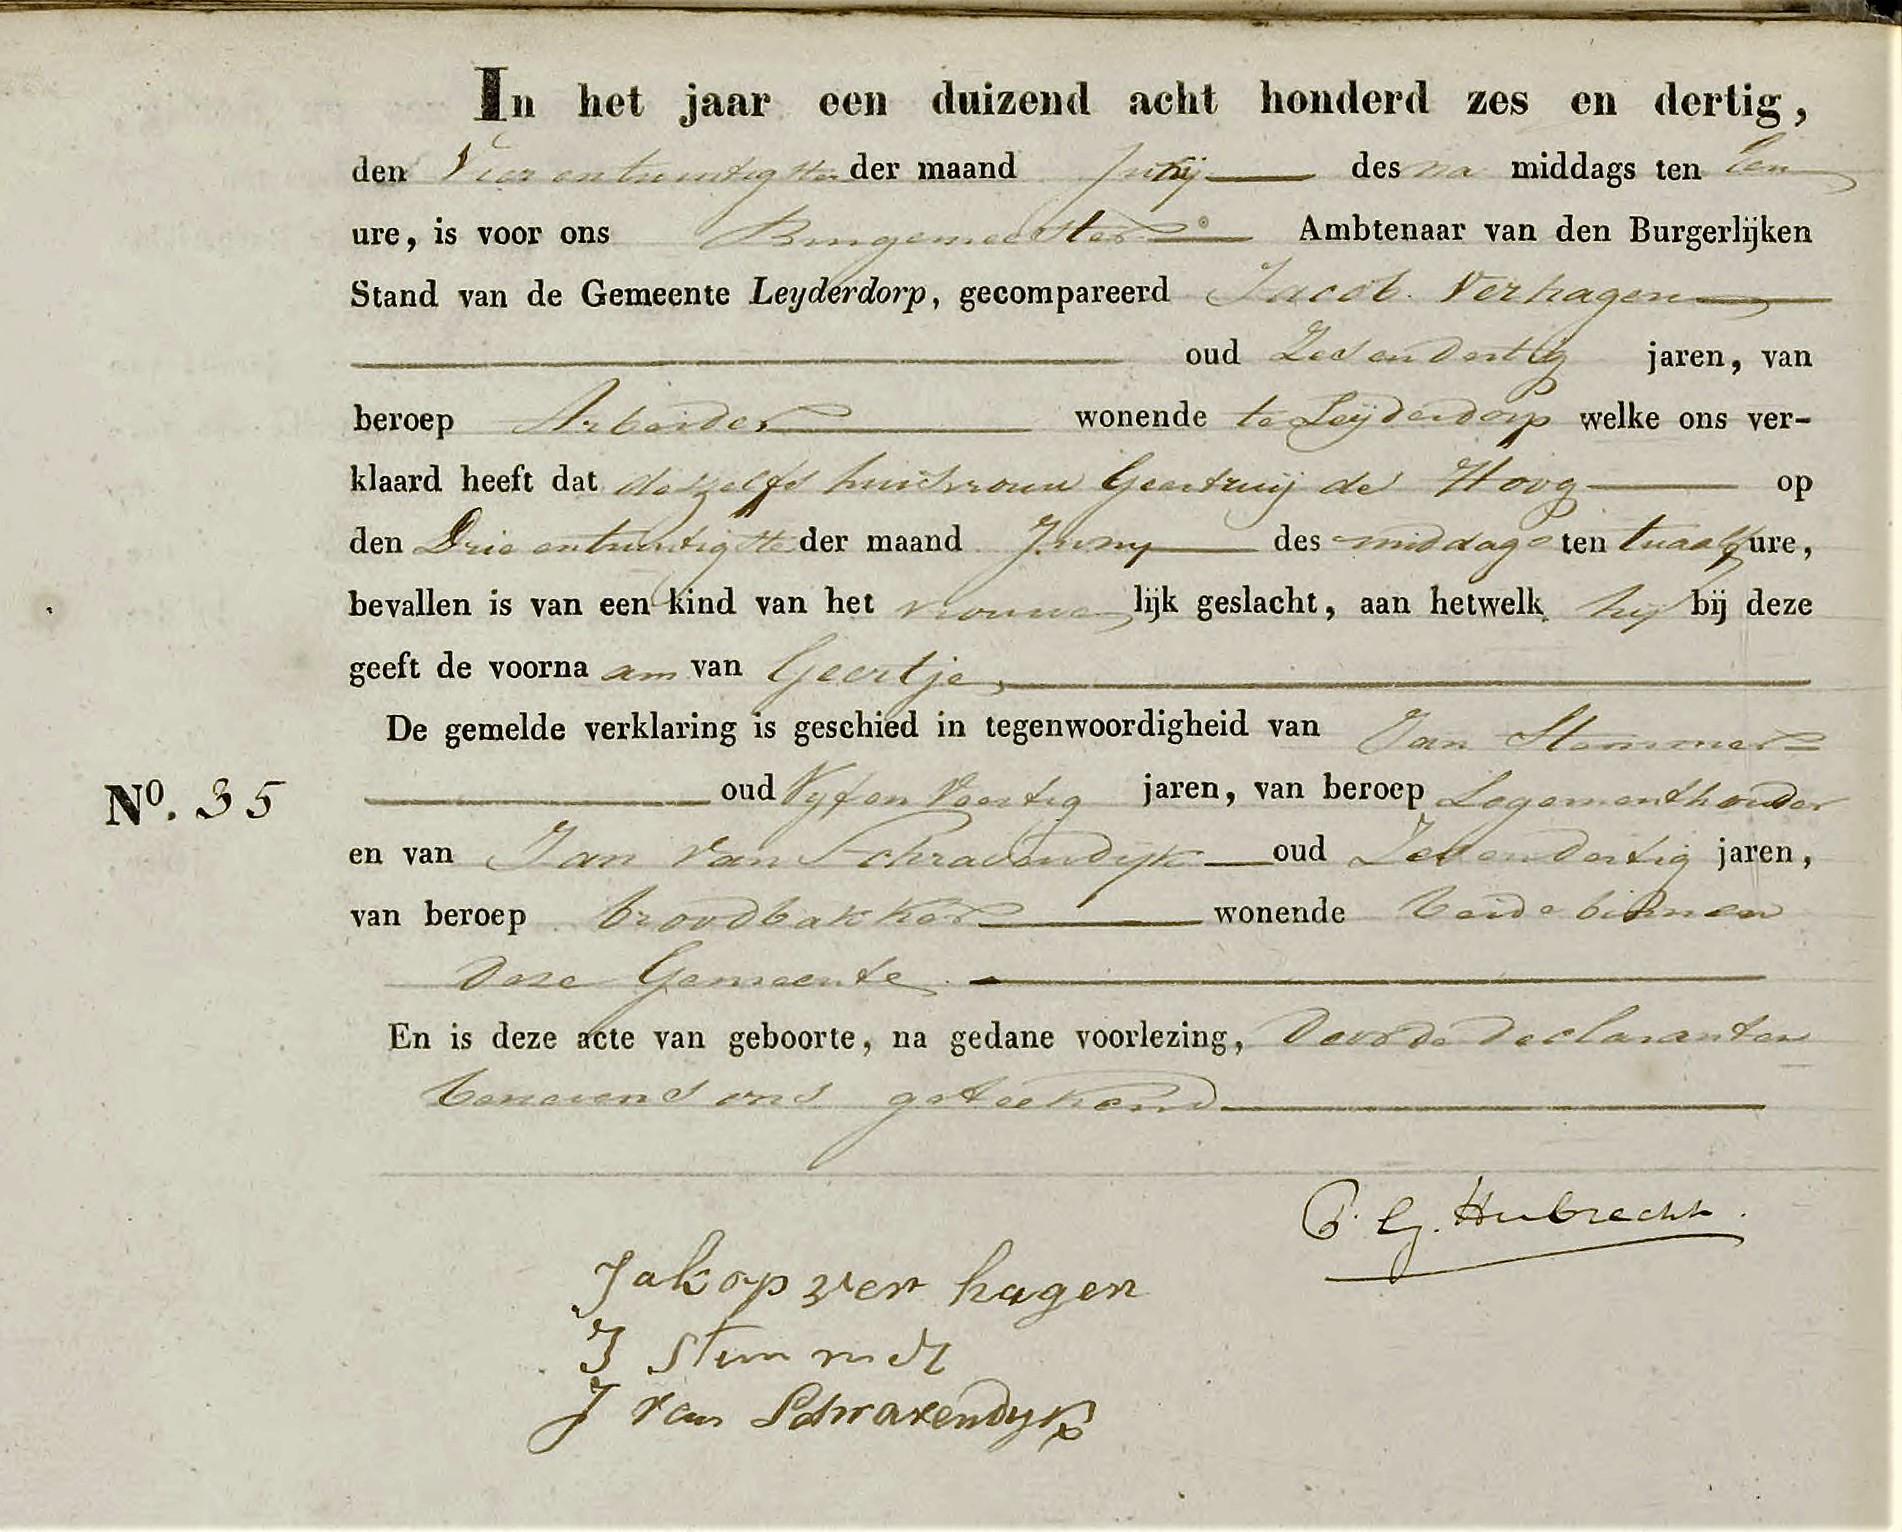 In het jaar een duizend acht honderd zes en dertig,
den Vier entwintigsten der maand Junij des na middags ten Een
ure, is voor ons Burgemeester Ambtenaar van den Burgerlijken
Stand van de Gemeente Leyderdorp, gecompareerd Jacob Verhagen
oud Zes en dertig jaren, van
beroep Arbeider wonende te Leijderdorp welke ons ver-
klaard heeft dat deszelfs huisvrouw Geertruij de Hoog op
den Drie entwintigste der maand Juny des middags ten twaalf ure,
bevallen is van een kind van het vrouwe lijk geslacht, aan hetwelk hij bij deze
geeft de voorna am van Geertje,
De gemelde verklaring is geschied in tegenwoordigheid van Jan Stemmer
oud Vyf en Veertig jaren, van beroep Logementhouder
No. 35
en van Jan van Schravendijk oud Zes en dertig jaren,
van beroep broodbakker wonende beide binnen
deze Gemeente
En is deze acte van geboorte, na gedane voorlezing, door de declaranten
benevens ons geteekend
P. G. Hubrecht.
Jakop ver hagen
J Stemmer
J van Schravendyk